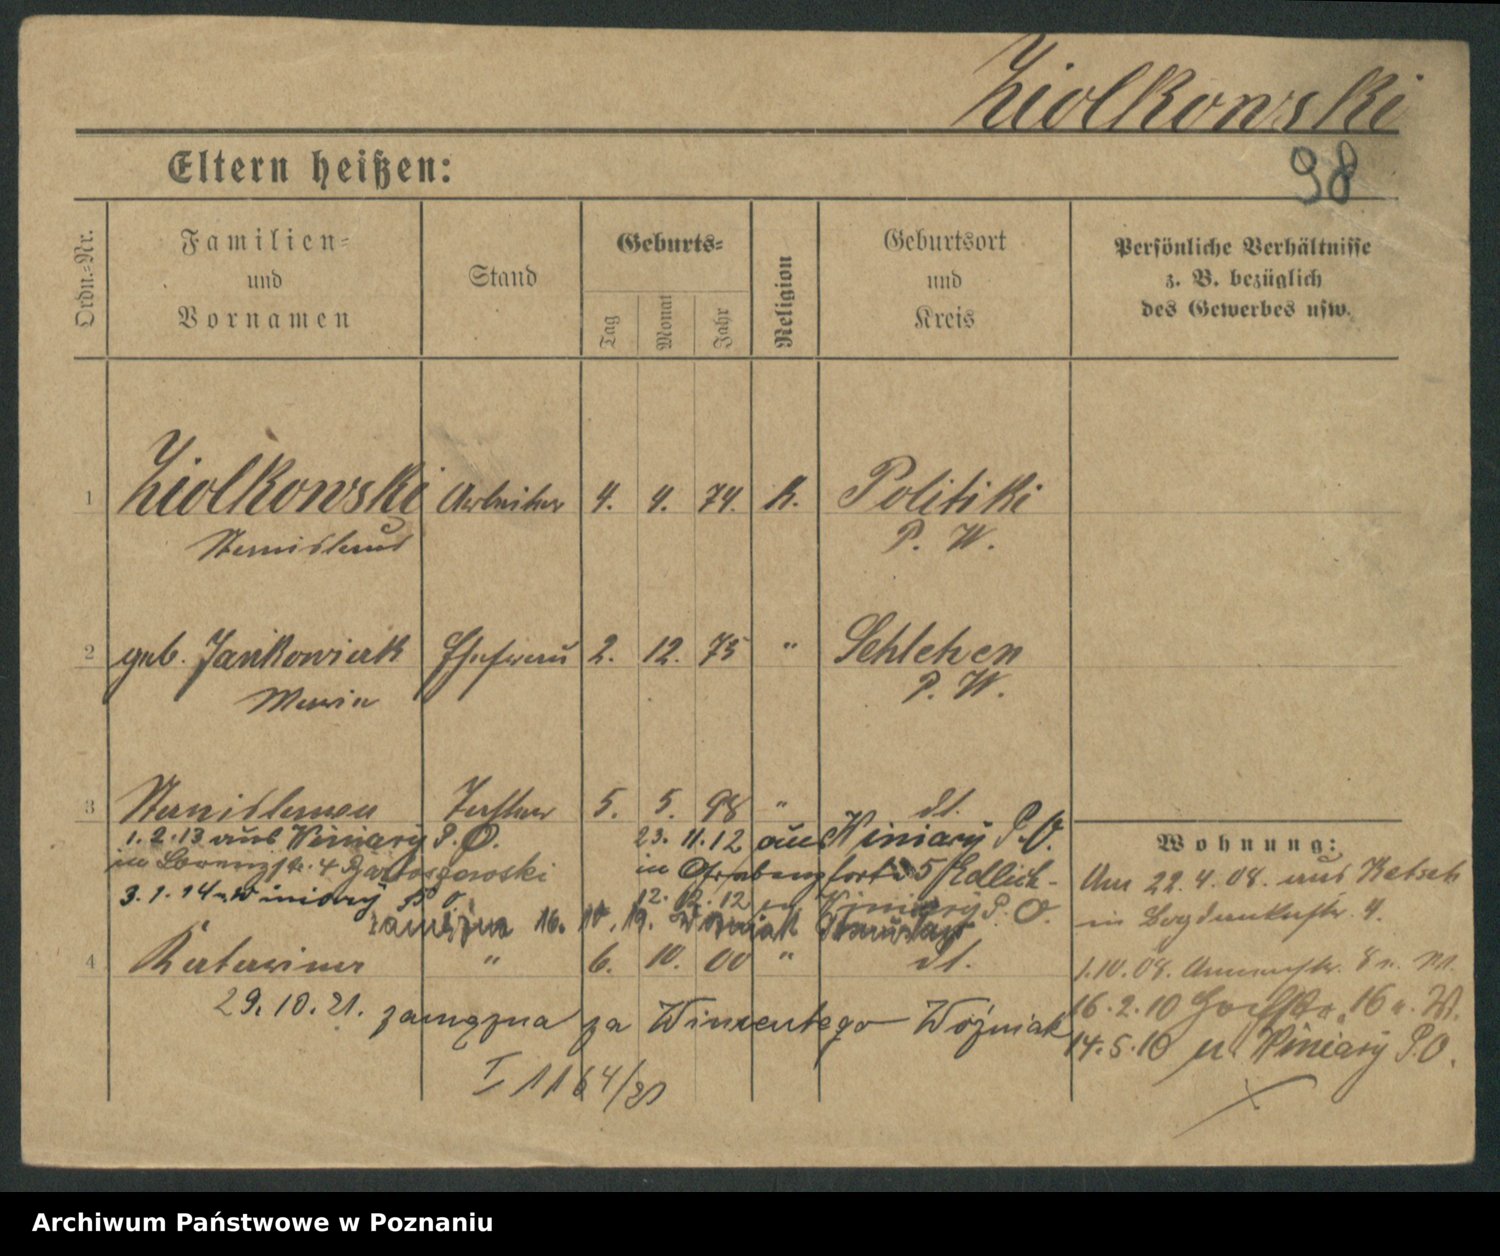 Ziolkowski
98
Eltern heißen:
Ordn.=Nr.
Familien=
und
Vornamen
Stand
Geburts=
Tag
Monat
Jahr
Religion
Geburtsort
und
Kreis
Persönliche Verhältnisse
z. B. bezüglich
des Gewerbes usw.
1 Ziolkowski Arbeiter 4. 4. 74. K. Politiki
Stanislaus P. W.
2 geb. Jankowiak Ehefrau 2. 12. 75 " Schlehen
Maria P. W.
3 Stanislawa Tochter 5. 5. 98 " dt.
1.2.13 aus Winiary P. O. 23. 11. 12 aus Winiary P. O.
in Lorenzstr. 4
in 5
3.1.14 Winiary P. O. 12. 12 Winiary P. O.
zamężna 16. 10. 19. Woźniak Stanisław
4 Katarina " 6. 10. 00 " dt.
29. 10. 21. zamężna za Wincentego Woźniak
I 1164/21
Wohnung:
Am 22. 4. 08. aus
in 4.
1.10.08. 8 b.
16. 2. 10 16 b.
14. 5. 10 n. Winiary P. O.
Archiwum Państwowe w Poznaniu